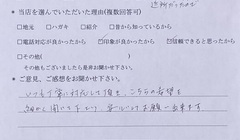 近所だったので
* 当店を選んでいただいた理由(複数回答可)
□地元 □ハガキ □紹介 □昔から知っているから
□電話対応が良かったから ☑印象が良かったから ☑信頼できると思ったから
□その他( )
その他もございましたら是非お聞かせ下さい。
* ご意見、ご感想をお聞かせ下さい。
いつも丁寧に対応して頂き、こちらの希望を
細かく聞いて下さり、安心してお願い出来ます